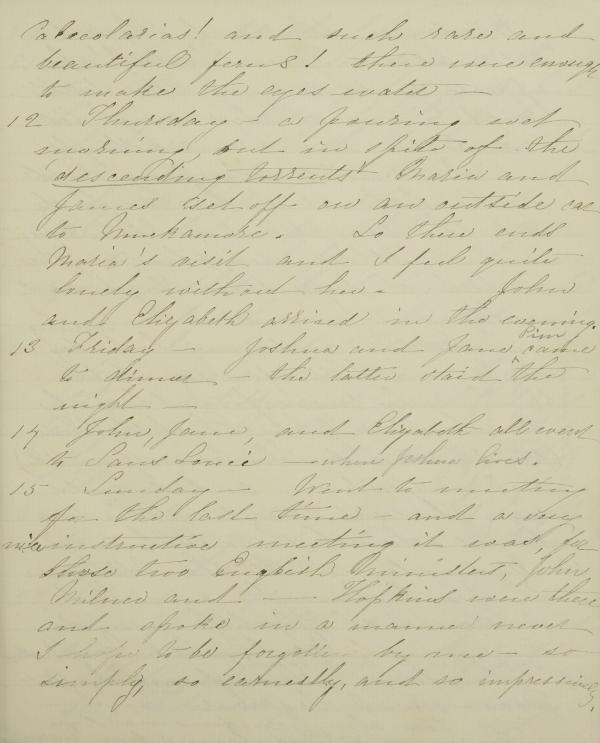 Calceolarias! and such rare and
beautiful ferns! there were enough
to make the eyes water —
12 Thursday – a pouring wet
morning, but in spite of the
"descending torrents" Maria and
James set off on an outside car
to Muckamore. So there ends
Maria's visit and I feel quite
lonely without her – John
and Elizabeth arrived in the evening.
13 Friday – Joshua and Jane Pim came
to dinner – the latter staid the
night —
14 John, Jane, and Elizabeth all went
to Sans Souci – where Joshua lives.
15 Sunday – Went to meeting
for the last time – and a very
nice instructive meeting it was, for
those two English ministers, John
Milner and — Hopkins were there
and spoke in a manner never
I hope to be forgotten by me – so
simply, so earnestly, and so impressively.